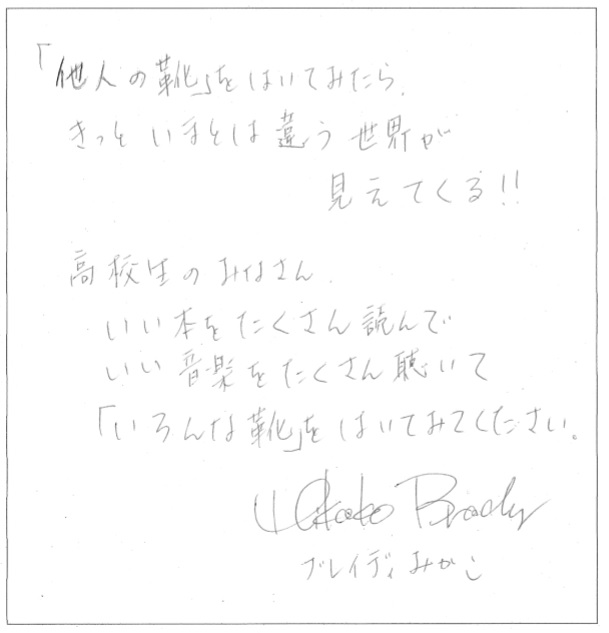 「他人の靴」をはいてみたら、
きっと いまとは違う世界が
見えてくる!!
高校生のみなさん、
いい本をたくさん読んで
いい音楽をたくさん聴いて
「いろんな靴」をはいてみてください。
Mikako Brady
ブレイディみかこ